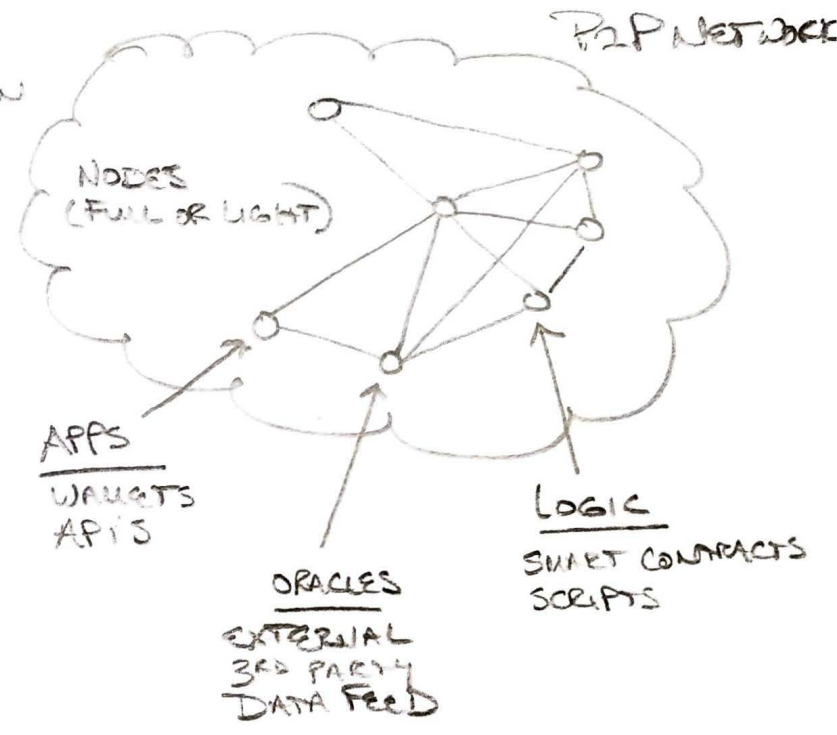 P2P NETWORK
N
NODES
(FULL OR LIGHT)
APPS
WALLETS
APIS
ORACLES
EXTERNAL
3RD PARTY
DATA FEED
LOGIC
SMART CONTRACTS
SCRIPTS